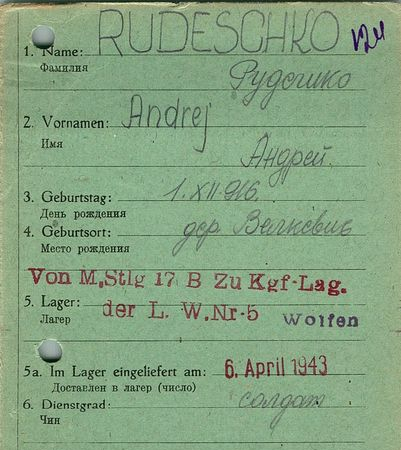 1. Name: RUDESCHKO
Фамилия Рудешко
2. Vornamen: Andrej
Имя Андрей
3. Geburtstag: 1.XII.916.
День рождения
4. Geburtsort: дер.
Место рождения
Von M.Stlg 17 B Zu Kgf-Lag.
5. Lager: der L. W. Nr-5 Wolfen
Лагер
5a. Im Lager eingeliefert am: 6. April 1943
Доставлен в лагер (число)
6. Dienstgrad: солдат
Чин